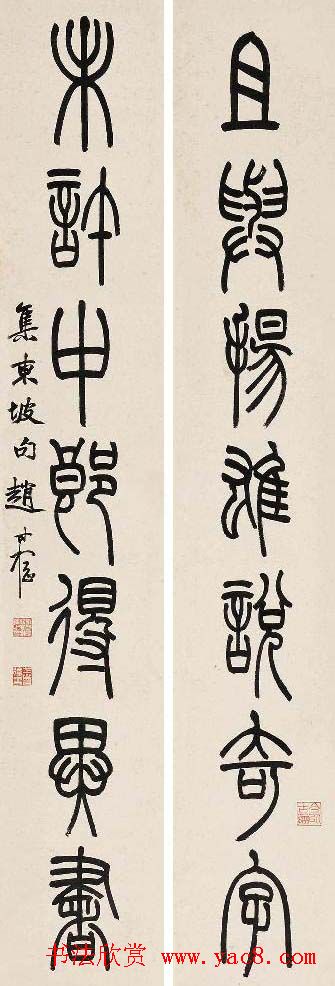 且與揚雄說奇字
未許中郎得異書
集東坡句趙叔孺
书法欣赏 www.yac8.com